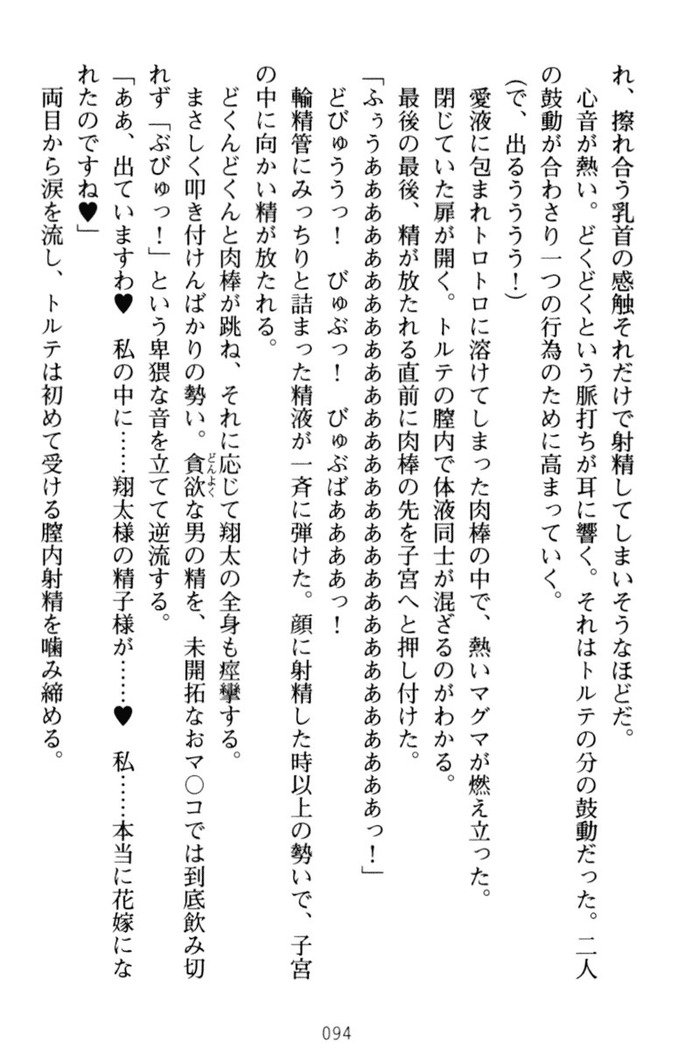 れ、擦れ合う乳首の感触それだけで射精してしまいそうなほどだ。
心音が熱い。どくどくという脈打ちが耳に響く。それはトルテの分の鼓動だった。二人
の鼓動が合わさり一つの行為のために高まっていく。
(で、出るうううう!)
愛液に包まれトロトロに溶けてしまった肉棒の中で、熱いマグマが燃え立った。
閉じていた扉が開く。トルテの膣内で体液同士が混ざるのがわかる。
最後の最後、精が放たれる直前に肉棒の先を子宮へと押し付けた。
「ふぅうあああああああああああああああああああああああああああああっ!」
どびゅううっ! びゅぶっ! びゅぶばああああっ!
輸精管にみっちりと詰まった精液が一斉に弾けた。顔に射精した時以上の勢いで、子宮
の中に向かい精が放たれる。
どくんどくんと肉棒が跳ね、それに応じて翔太の全身も痙攣する。
まさしく叩き付けんばかりの勢い。貪欲な男の精を、未開拓なおマ○コでは到底飲み切
れず「ぶびゅっ!」という卑猥な音を立てて逆流する。
「ああ、出ていますわ♥ 私の中に……翔太様の精子様が……♥ 私……本当に花嫁にな
れたのですね♥」
両目から涙を流し、トルテは初めて受ける膣内射精を噛み締める。
094